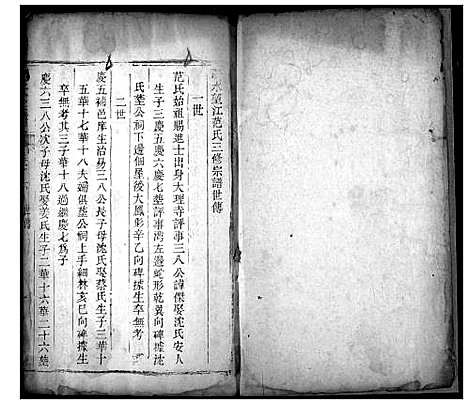 水蓴江范氏三修宗譜世傳
一世
范氏始祖賜進士出身大理寺評事三八公諱傑娶沈氏安人
生子三慶五慶六慶七塟評事灣左邊蛇形乾巽向碑據沈
氏塟公祠下邊個屋後大鳳形辛乙向碑據生卒無考
二世
慶五補邑庠生治易三八公長子母沈氏娶蔡氏生子三華十
五華十七華十八夫婦俱塟公祠上手細林亥巳向碑據生
卒無考其三子華十八過繼慶七為子
慶六三八公次子母沈氏娶姜氏生子二華十六華二十六塟